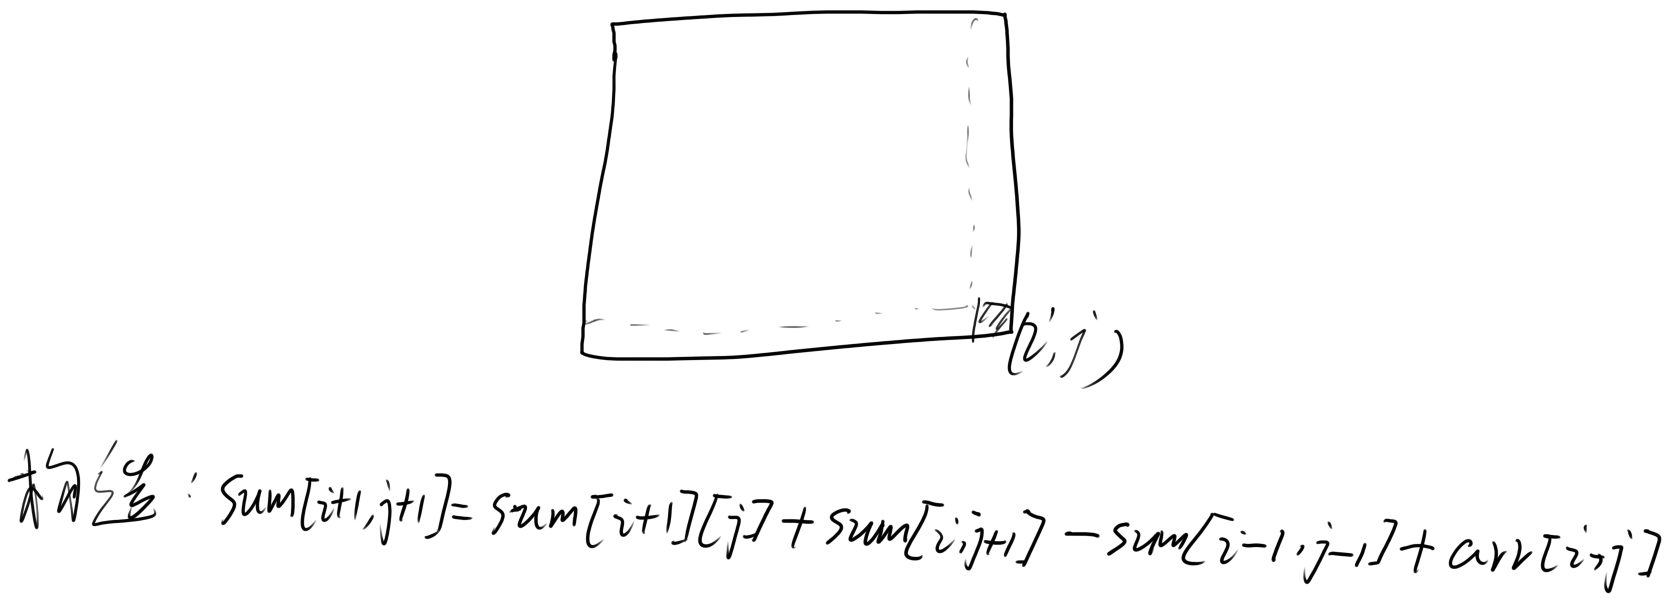 (i,j)
构造：sum[i+1,j+1]=sum[i+1][j]+sum[i,j+1]-sum[i-1,j-1]+arr[i,j]